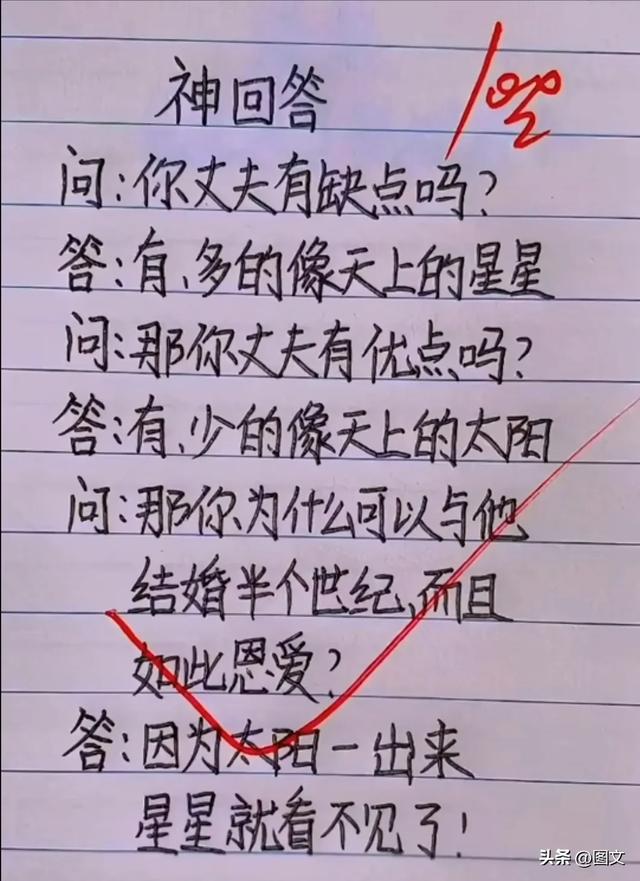 神回答
问:你丈夫有缺点吗?
答:有、多的像天上的星星
问:那你丈夫有优点吗?
答:有、少的像天上的太阳
问:那你为什么可以与他
结婚半个世纪、而且
如此恩爱?
答:因为太阳一出来
星星就看不见了!
头条 @图文